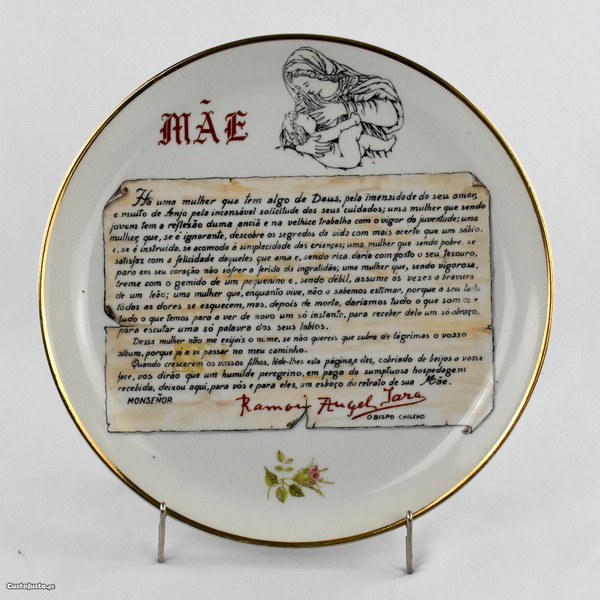 MÃE
Ha uma mulher que tem algo de Deus, pela imensidade do seu amor,
e muito de Anjo pela incansável solicitude dos seus cuidados; uma mulher que sendo
jovem tem a reflexão duma anciã e na velhice trabalha com o vigor da juventude; uma
mulher, que, se é ignorante, descobre os segredos da vida com mais acerto que um sábio.
e, se é instruida, se acomoda á simplecidade das crianças; uma mulher, que sendo pobre, se
satisfaz com a felicidade daqueles que ama e, sendo rica, daria com gosto o seu tesouro,
para em seu coração não sofrer a ferida da ingratidão; uma mulher que, sendo vigorosa,
treme com o gemido de um pequenino e, sendo débil, assume ás vezes a bravura
de um leão; uma mulher que, enquanto vive, não a sabemos estimar, porque a seu lado
todas as dores se esquecem, mas, depois de morta, dariamos tudo o que somos e
tudo o que temos para a ver de novo um só instante, para receber dela um só abraço,
para escutar uma só palavra dos seus labios.
Dessa mulher não me exijais o nome, se não quereis que cubra de lágrimas o vosso
album, porque já a vi passar no meu caminho.
Quando crescerem os vossos filhos, lêde-lhes esta página, e eles, cobrindo de beijos a vossa
face, vos dirão que um humilde peregrino, em paga da sumptuosa hospedagem
recebida, deixou aqui, para vós e para eles, um esboço do retrato de sua Mãe.
MONSEÑOR
Ramon Angel Jara
OBISPO CHILENO
CustoJusto.pt